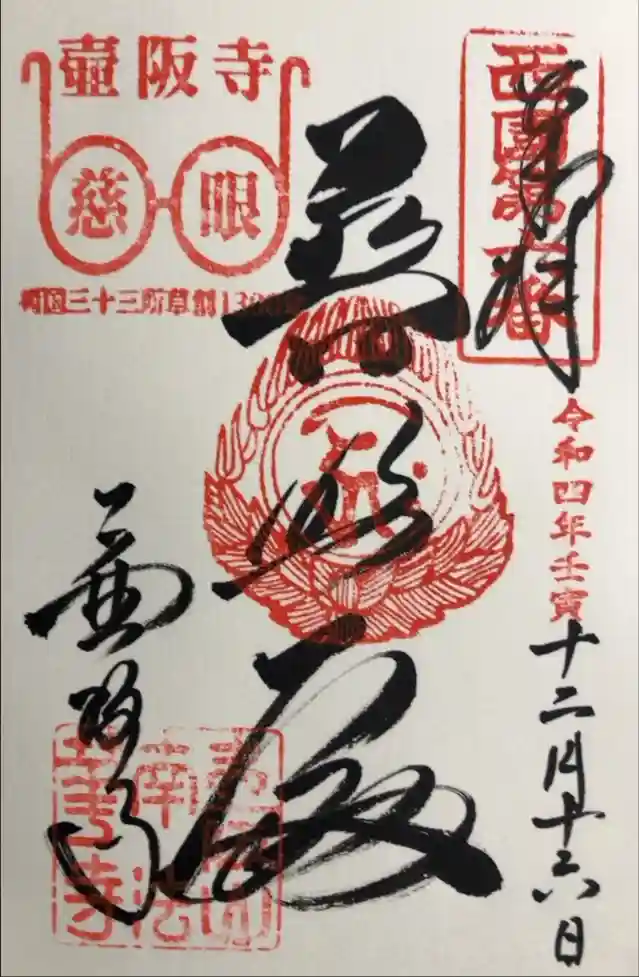 壺阪寺
慈眼
西国三十三所草創1300年
西國第六番
奉拝
令和四年壬寅
十二月十六日
普照殿
壺阪寺
壺阪山
南法
華寺